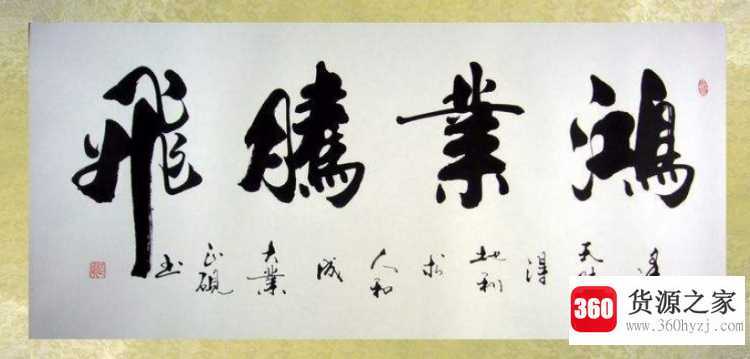 鴻業騰飛
天時得地利
人和成大業
正硯书
360
货源之家
www.360hyzj.com